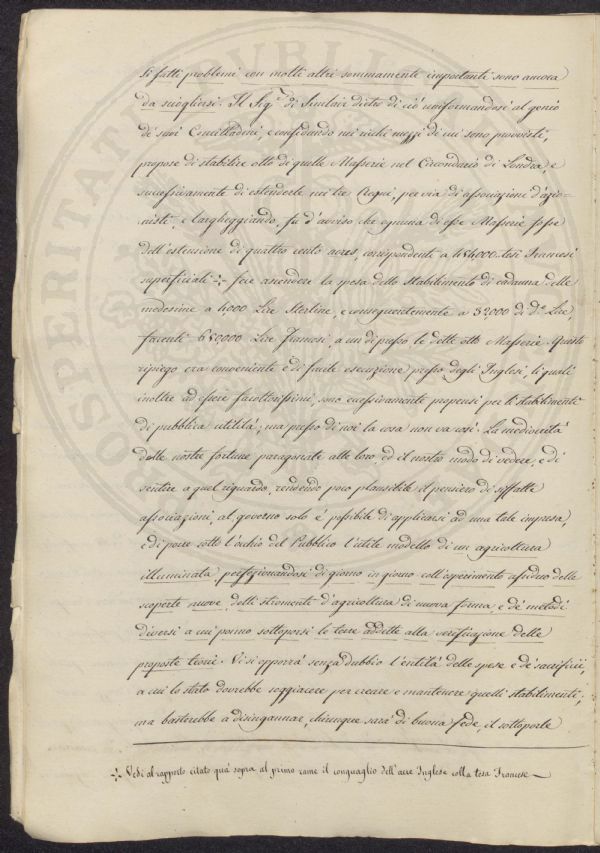 Sì fatti problemi con molti altri sommamente importanti sono ancora
da sciogliersi. Il Sig.r di Sinclair dietro di ciò uniformandosi al genio
de' suoi Concittadini, e confidando nei ricchi mezzi di cui sono provvisti,
propose di stabilire otto di quelle Masserie nel Circondario di Londra, e
successivamente di estenderle nei tre Regni, per via di associazioni d'azio-
nisti, e largheggiando, fu d'avviso che ognuna di esse Masserie fosse
dell'estensione di quattro cento acres, corrispondente a 484000 tesi Francesi
superficiali ·:· fece ascendere la spesa dello stabilimento di cadauna delle
medesime a 4000 Lire Sterline, e conseguentemente a 32000 di d.e Lire,
facenti 650000 Lire Francesi, a un di presso le dette otto Masserie. Questo
ripiego era conveniente e di facile esecuzione presso degli Inglesi, li quali
inoltre ad essere facoltosissimi, sono eccessivamente propensi per li stabilimenti
di pubblica utilità; ma presso di noi la cosa non va così. La mediocrità
delle nostre fortune paragonate alle loro ed il nostro modo di vedere, e di
sentire a quel riguardo, rendendo poco plausibile il pensiero di siffatte
associazioni, al governo solo è possibile di applicarsi ad una tale impresa,
e di porre sotto l'occhio del Pubblico l'utile modello di un agricoltura
illuminata, perfezionandosi di giorno in giorno coll'esperimento assiduo delle
scoperte nuove, delli stromenti d'agricoltura di nuova forma, e de' metodi
diversi a cui ponno sottoporsi le terre addette alla verificazione delle
proposte teorie. Vi si opporrà senza dubbio l'entità delle spese e de' sacrificii,
a cui lo stato dovrebbe soggiacere per creare e mantenere quelli stabilimenti;
ma basterebbe a disingannar, chiunque sarà di buona fede, il sottoporle
·:· Vedi al rapporto citato quà sopra al primo rame il conguaglio dell'acre Inglese colla tesa Francese